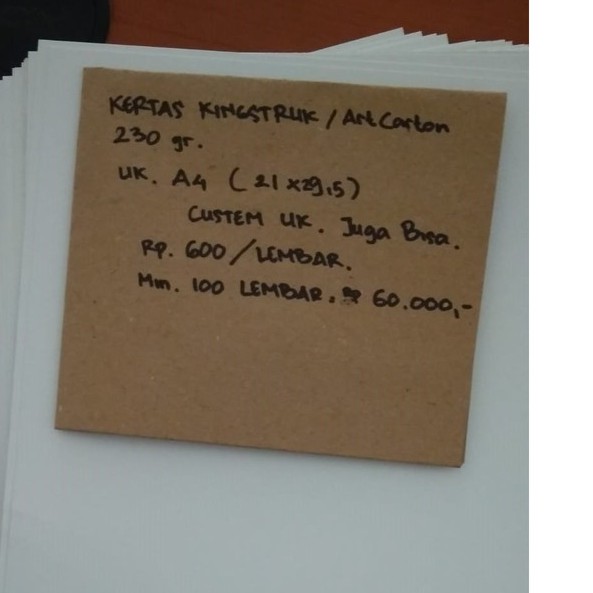 KERTAS KINGSTRUK / Art Carton
230 gr.
UK. A4 ( 21 x29,5 )
CUSTEM UK. Juga Bisa.
Rp. 600 / LEMBAR.
Min. 100 LEMBAR. Rp 60.000,-